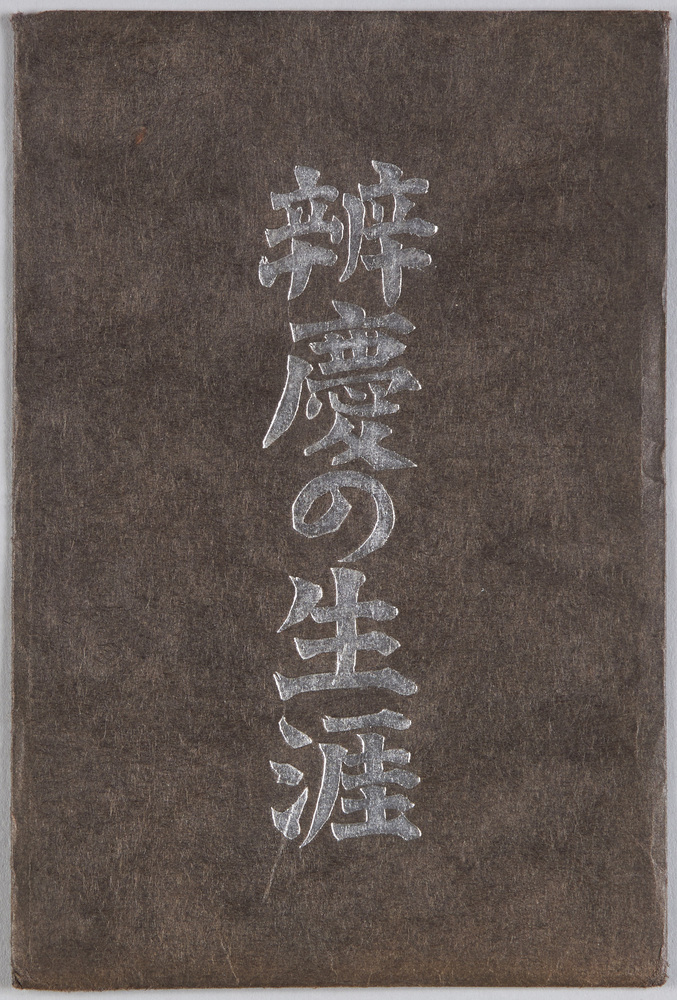 辨慶の生涯